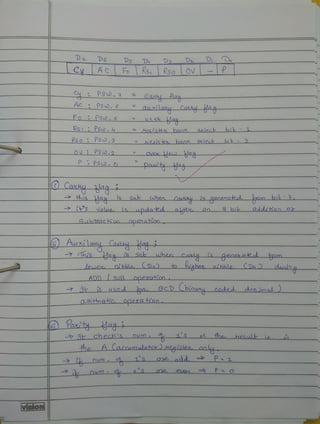 D7 D6 D5 D4 D3 D2 D1 D0
Cy | AC | F0 | RS1 | RS0 | OV | – | P
Cy : PSW.7 = carry flag
AC : PSW.6 = auxilary carry flag
F0 : PSW.5 = user flag
RS1 : PSW.4 = register bank select bit - 1
RS0 : PSW.3 = register bank select bit - 2
OV : PSW.2 = over flow flag
P : PSW.0 = parity flag
① Carry flag :
→ this flag is set when carry is generated from bit 7.
→ It's value is updated after an 8 bit addition or
subtraction operation.
② Auxilary Carry flag :
→ This flag is set when carry is generated from
lower nibble (D3) to higher nibble (D4) during
ADD / sub operation.
→ It is used for BCD (binary coded decimal)
arithmatic operation.
③ Parity flag :
→ It check's num. of 1's of the result is in
the A (accumulator) register only.
→ If num. of 1's are odd → P = 1
→ if num. of 1's are even → P = 0
vision